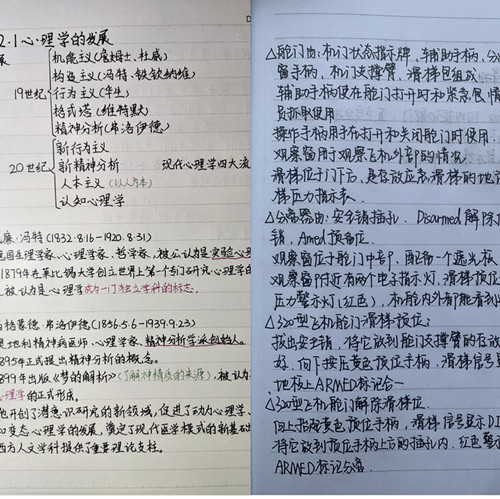 2.1心理学的发展
展
机能主义(詹姆士、杜威)
构造主义(冯特、铁钦纳维)
19世纪
行为主义(华生)
格式塔(维特默)
精神分析(弗洛伊德)
新行为主义
20世纪
新精神分析
现代心理学四大流
人本主义(以人为本)
认知心理学
廉·冯特(1832.8.16-1920.8.31)
国生理学家、心理学家、哲学家,被公认为是实验心理
1879年在莱比锡大学创立世界上第一个专门研究心理学的
被认为是心理学成为一门独立学科的标志。
格蒙德·弗洛伊德(1856.5.6-1939.9.23)
地利精神病医师、心理学家、精神分析学派创始人。
895年正式提出精神分析的概念。
899年出版《梦的解析》(了解神情质的来源),被认为
心理学的正式形成。
他开创了潜意识研究的新领域,促进了动力心理学、
和变态心理学的发展,奠定了现代医学模式的新基础
西方人文学科提供了重要理论支柱。
△舱门由:机门状态指示牌、辅助手柄、分
留手柄、机门支撑臂、滑梯包组成
辅助手柄使在舱门打开时和紧急包情
员抓取使用
操作手柄用于在打开和关闭舱门时使用
观察窗用于观察飞机外部的情况
滑梯位于门下方,是存放应急滑梯的地
梯压力指示表.
△分离器由:安全销插孔、Disarmed解除
销、Amed预备位.
观察窗位于舱门中部,配备一个遮光板
观察窗附近有两个电子指示灯,滑梯预位
压力警示灯(红色),机舱内外都能看到
△320型飞机舱门滑梯预位:
拔出安全销,将它放到舱门支撑臂的存放
好,向下按压黄色预位手柄,滑梯信号显
地板上ARMED标记合一
△320型飞机舱门解除滑梯位.
向上抬拨黄色预位手柄,滑梯信号显示DI
将它放到预位手柄上方的插孔内,红色警
ARMED标记分离.